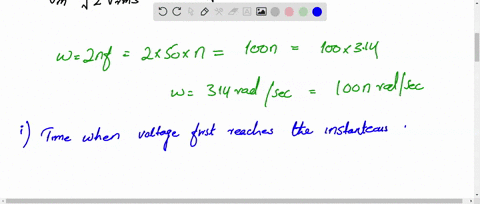 Vm √2 Vrms
w = 2nf = 2×50×n = 100n = 100×3.14
w = 314 rad/sec = 100n rad/sec
i) Time when voltage first reaches the instanteous .